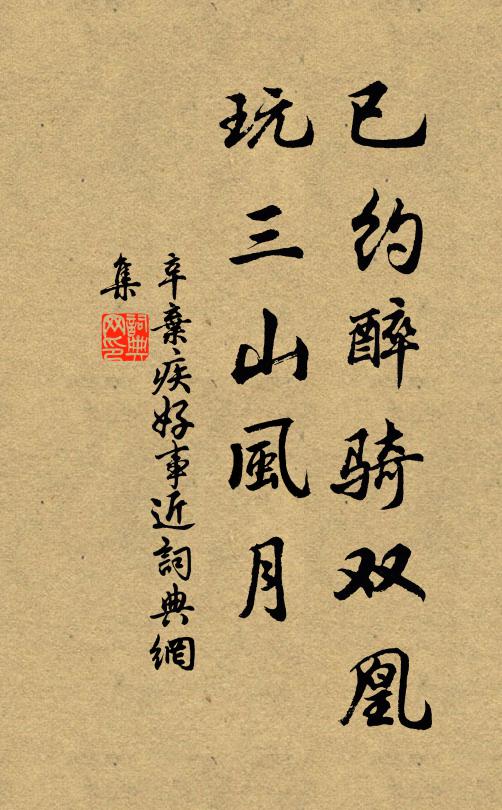 已约醉骑双凰
玩三山風月
辛棄疾好事近詞典網
集
詞典
网印